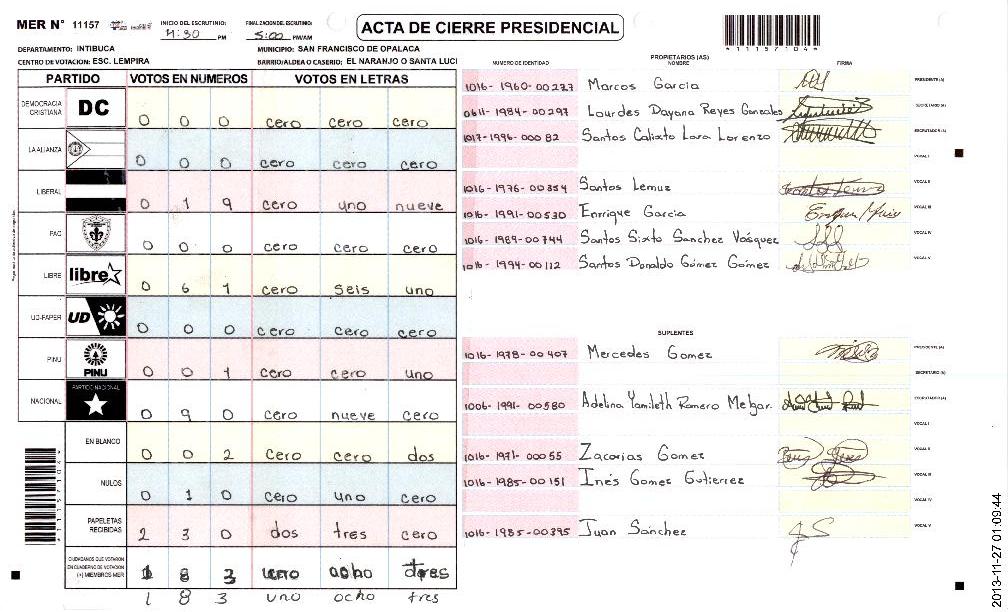 MER N° 11157
INICIO DEL ESCRUTINIO: 4:30 PM
FINALIZACION DEL ESCRUTINIO: 5:00 PM/AM
ACTA DE CIERRE PRESIDENCIAL
*11157104*
DEPARTAMENTO: INTIBUCA
MUNICIPIO: SAN FRANCISCO DE OPALACA
CENTRO DE VOTACION: ESC. LEMPIRA
BARRIO/ALDEA O CASERIO: EL NARANJO O SANTA LUCI
PARTIDO VOTOS EN NUMEROS VOTOS EN LETRAS
DEMOCRACIA CRISTIANA DC 0 0 0 cero cero cero
LA ALIANZA 0 0 0 cero cero cero
LIBERAL 0 1 9 cero uno nueve
PAC 0 0 0 cero cero cero
LIBRE libre 0 6 1 cero seis uno
UD-FAPER UD 0 0 0 cero cero cero
PINU PINU 0 0 1 cero cero uno
NACIONAL PARTIDO NACIONAL 0 9 0 cero nueve cero
EN BLANCO 0 0 2 cero cero dos
NULOS 0 1 0 cero uno cero
PAPELETAS RECIBIDAS 2 3 0 dos tres cero
CIUDADANOS QUE VOTARON EN CUADERNO DE VOTACION (+) MIEMBROS MER 1 8 3 uno ocho tres
1 8 3 uno ocho tres
NUMERO DE IDENTIDAD PROPIETARIOS (AS) NOMBRE FIRMA
1016-1960-00237 Marcos Garcia PRESIDENTE (A)
0611-1984-00297 Lourdes Dayana Reyes Gonzales SECRETARIO (A)
1017-1996-00082 Santos Calixto Lara Lorenzo ESCRUTADOR (A)
VOCAL I
1016-1976-00354 Santos Lemuz VOCAL II
1016-1991-00530 Enrique Garcia VOCAL III
1016-1989-00744 Santos Sixto Sanchez Vásquez VOCAL IV
1016-1994-00112 Santos Donaldo Gómez Gómez VOCAL V
SUPLENTES
1016-1978-00407 Mercedes Gomez PRESIDENTE (A)
SECRETARIO (A)
1006-1991-00580 Adelina Yamileth Romero Melgar. ESCRUTADOR (A)
VOCAL I
1016-1971-00055 Zacarias Gomez VOCAL II
1016-1985-00151 Inés Gomez Gutierrez VOCAL III
VOCAL IV
1016-1985-00395 Juan Sánchez VOCAL V
*11157104*
2013-11-27 01:09:44